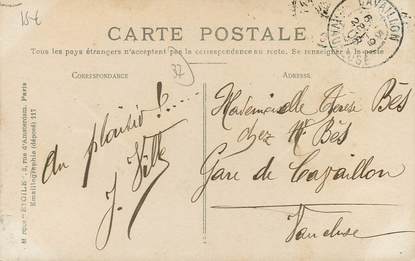 15€
CARTE POSTALE
Tous les pays étrangers n'acceptent pas la correspondance au recto. Se renseigner à la poste
32
CORRESPONDANCE
ADRESSE
au plaisir !.....
J. Ville
Mademoiselle Thérèse Bès
chez Mr Bès
Gare de Cavaillon
Vaucluse
"ETOILE", rue d'Amsterdam, Paris
Emaillographie (déposé) 117
CAVAILLON